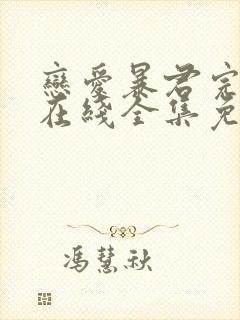 戀愛暴君完
在綫全集免
馮慧秋